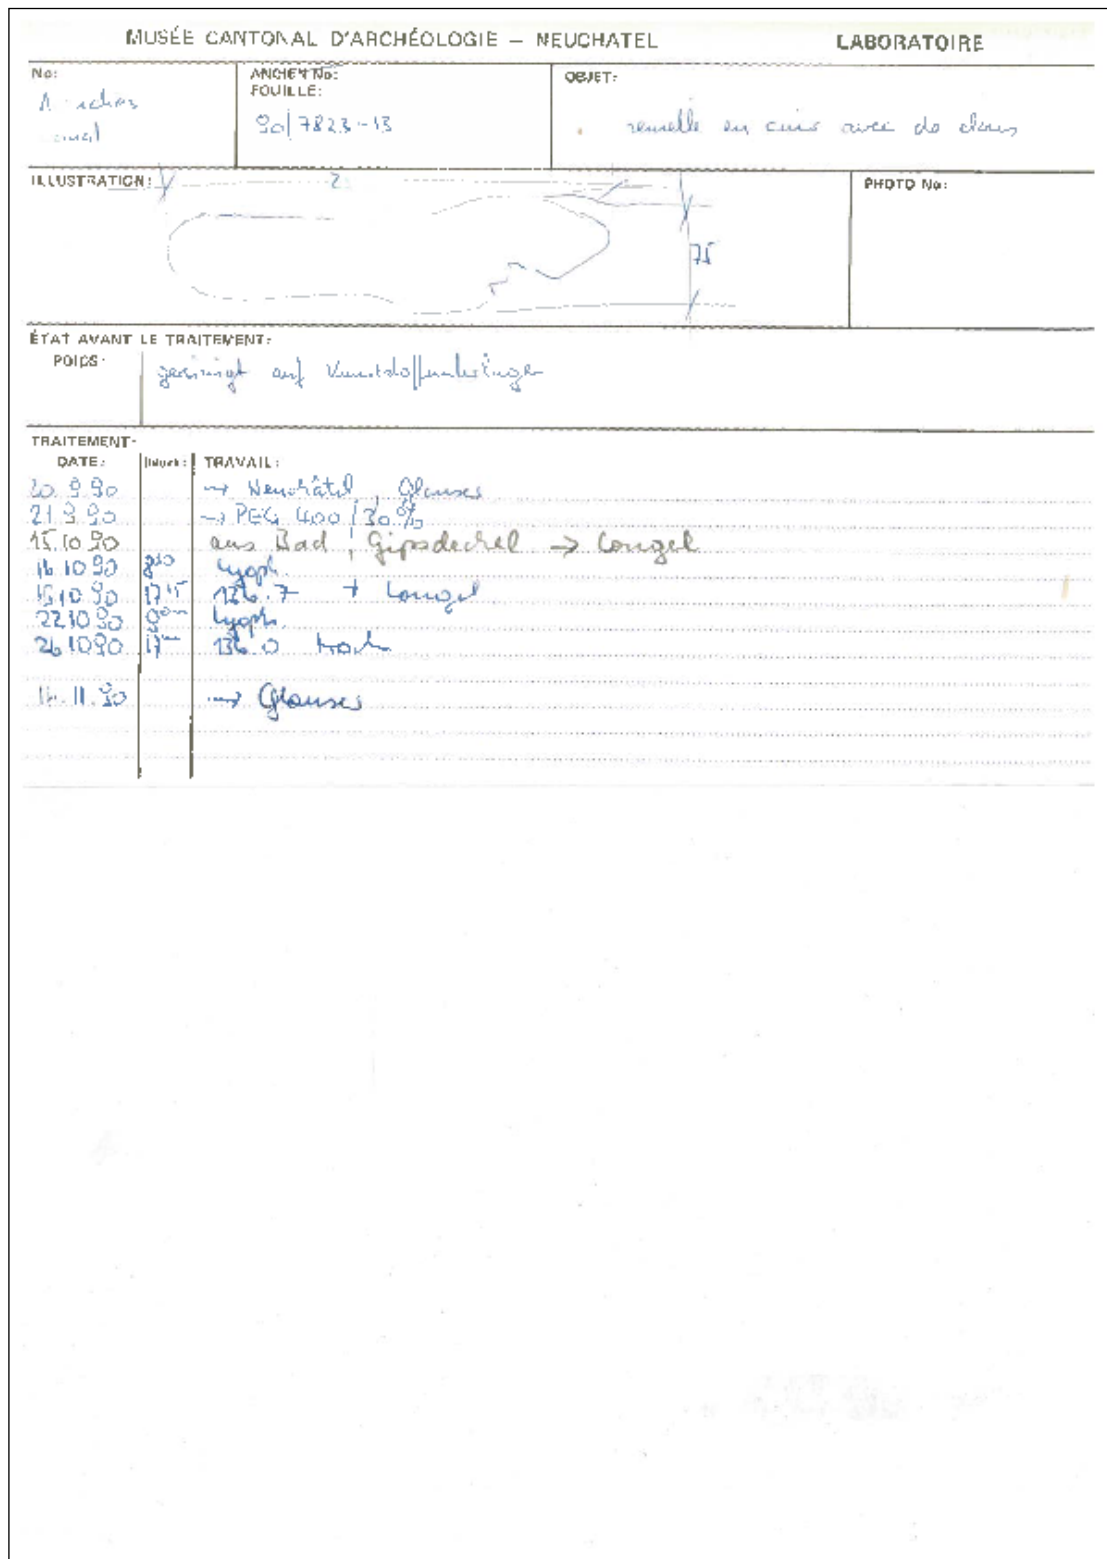 MUSÉE CANTONAL D'ARCHÉOLOGIE – NEUCHATEL LABORATOIRE
No: ANCIEN No: FOUILLE: OBJET:
90/7823-13 semelle en cuir avec de clous
ILLUSTRATION: PHOTO No:
75
ÉTAT AVANT LE TRAITEMENT:
POIDS: gereinigt auf Kunststoffunterlage
TRAITEMENT:
DATE: TRAVAIL:
20.9.90 → Neuchâtel, Glauser
21.9.90 → PEG 400/30%
15.10.90 aus Bad, Gipsdeckel → Congel
16.10.90 8³⁰ Lyoph.
17¹⁵ 136.7 + Congel
22.10.90 Lyoph.
26.10.90 136.0
→ Glauser